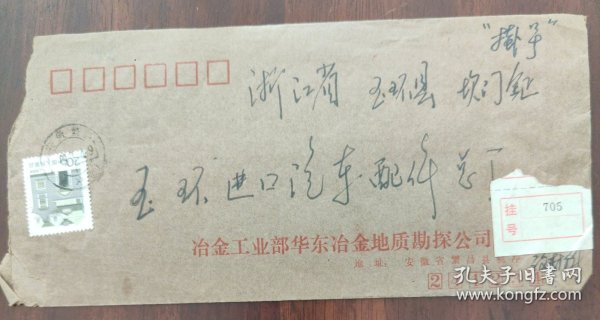 "挂号"
浙江省 玉环县 坎门镇
玉环进口汽车配件总厂
挂号
705
冶金工业部华东冶金地质勘探公司
地址：安徽省繁昌县
2
孔夫子旧书网
www.kongfz.com